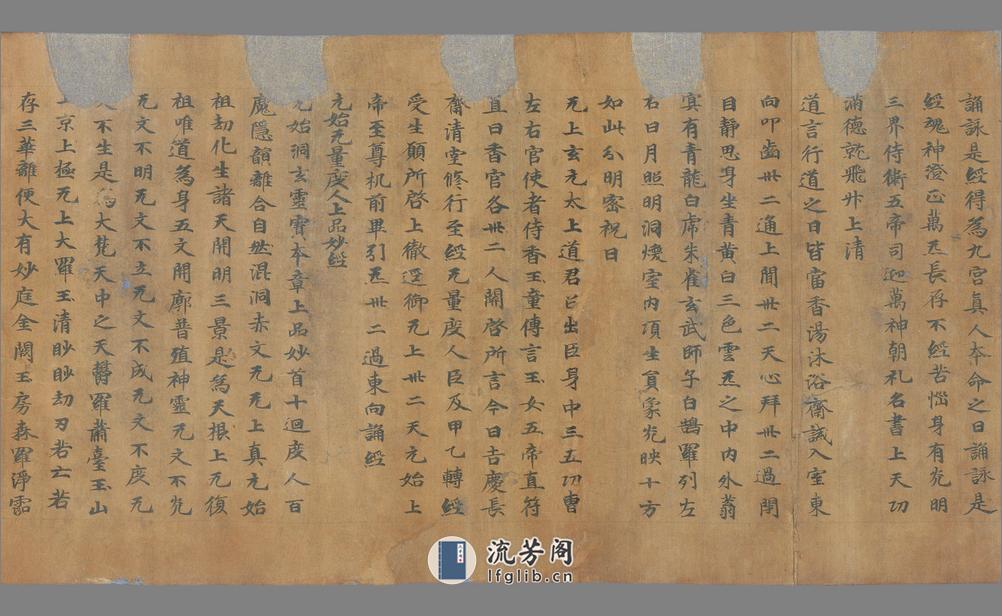 誦詠是經得為九宮真人本命之日誦詠是
經魂神澄正萬炁長存不經苦惱身有光明
三界侍衛五帝司迎萬神朝礼名書上天功
滿德就飛升上清
道言行道之日皆當香湯沐浴齋誡入室東
向叩齒卅二通上聞卅二天心拜卅二過閇
目靜思身坐青黃白三色雲炁之中內外蓊
寞有青龍白虎朱雀玄武師子白鵠羅列左
右日月照明洞煥室內項生貟象光映十方
如此分明密祝曰
无上玄元太上道君召出臣身中三五功曹
左右官使者侍香玉童傳言玉女五帝直符
直日香官各卅二人關啓所言今日吉慶長
齋清堂修行至經无量度人臣及甲乙轉經
受生願所啓上徹逕御无上卅二天元始上
帝至尊机前畢引炁卅二過東向誦經
元始无量度人上品妙經
元始洞玄靈寶本章上品妙首十迴度人百
魔隱韻離合自然混洞赤文无无上真元始
祖劫化生諸天開明三景是為天根上无復
祖唯道為身五文開廓普殖神靈无文不光
无文不明无文不立无文不成无文不度无
文不生是為大梵天中之天欝羅蕭臺玉山
上京上極无上大羅玉清眇眇劫刃若亡若
存三華離便大有妙庭金闕玉房森羅淨
流芳阁
lfglib.cn